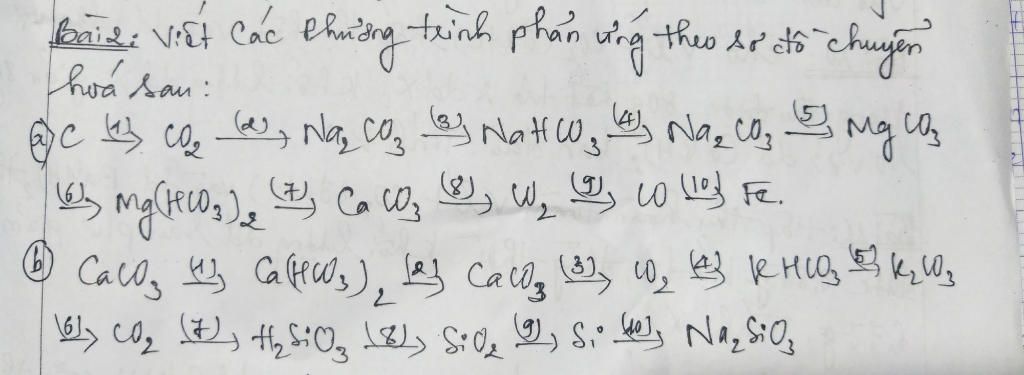 Bài 2: Viết các phương trình phản ứng theo sơ đồ chuyển
hoá sau:
a) C (1)→ CO₂ (2)→ Na₂CO₃ (3)→ NaHCO₃ (4)→ Na₂CO₃ (5)→ MgCO₃
(6)→ Mg(HCO₃)₂ (7)→ CaCO₃ (8)→ CO₂ (9)→ CO (10)→ Fe.
b) CaCO₃ (1)→ Ca(HCO₃)₂ (2)→ CaCO₃ (3)→ CO₂ (4)→ KHCO₃ (5)→ K₂CO₃
(6)→ CO₂ (7)→ H₂SiO₃ (8)→ SiO₂ (9)→ Si (10)→ Na₂SiO₃